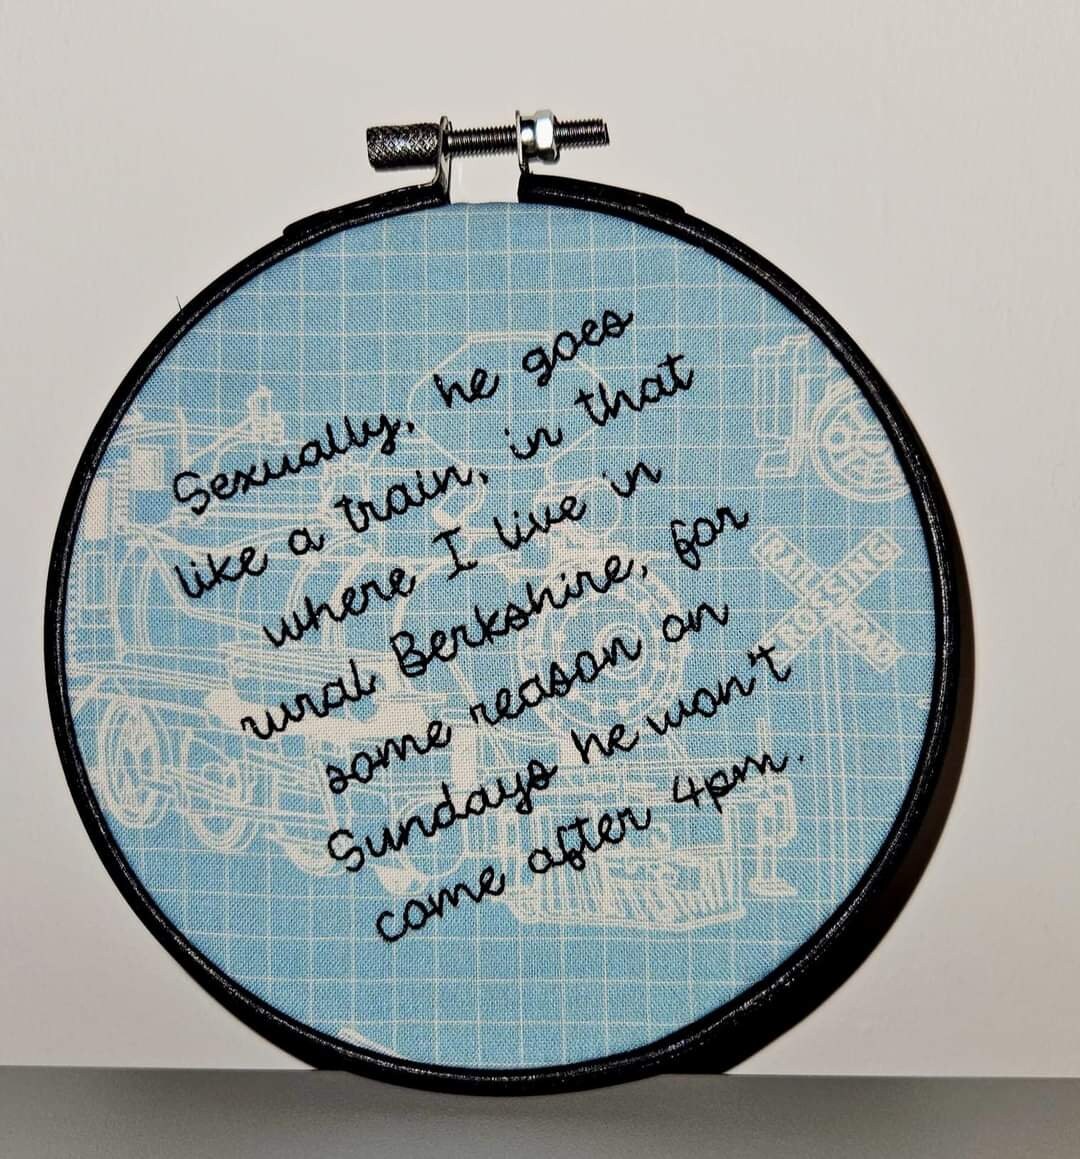 Sexually, he goes
like a train, in that
where I live in
rural Berkshire, for
some reason on
Sundays he won't
come after 4pm.
RAILROAD
CROSSING